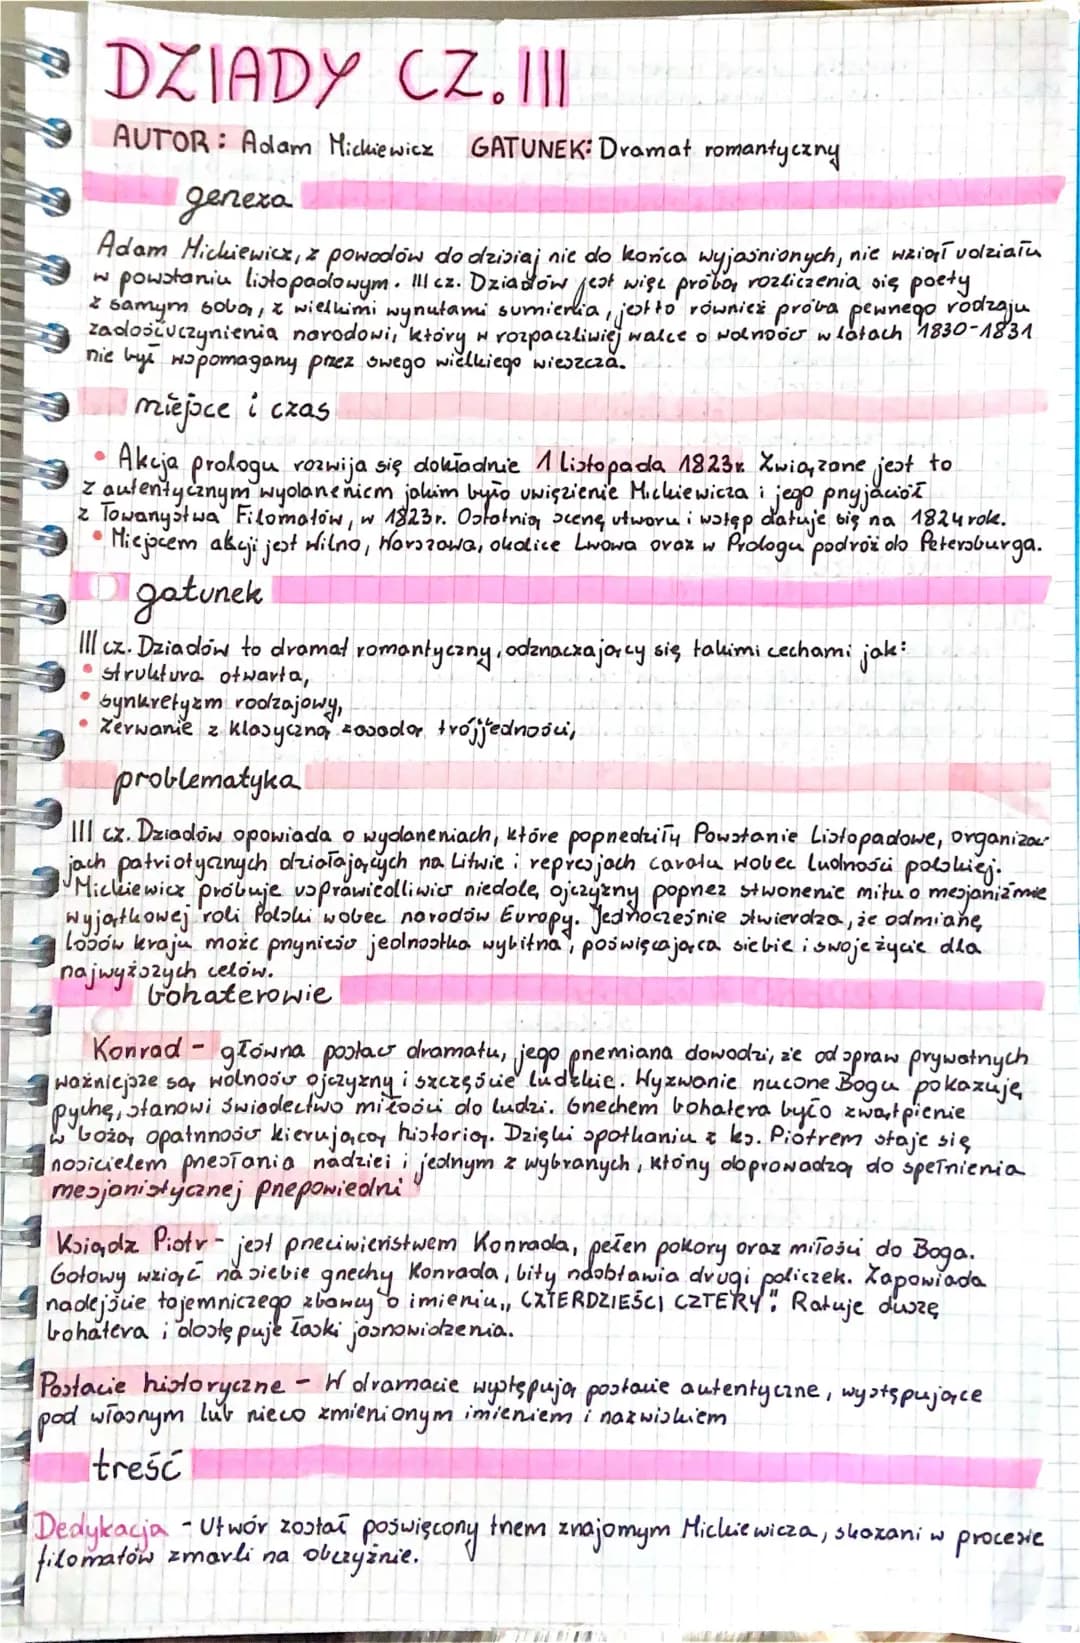 DZIADY CZ. III
AUTOR: Adam Mickiewicz GATUNEK: Dramat romantyczny
geneza
Adam Mickiewicz, z powodów do dzisiaj nie do końca wyjaśnionych, nie wziął udziału
w powstaniu listopadowym. III cz. Dziadów jest więc próbą rozliczenia się poety
z samym sobą, z wielkimi wyrzutami sumienia, jest to również próba pewnego rodzaju
zadośćuczynienia narodowi, który w rozpaczliwej walce o wolność w latach 1830-1831
nie był wspomagany przez swego wielkiego wieszcza.
miejsce i czas
• Akcja prologu rozwija się dokładnie 1 listopada 1823r. Związane jest to
z autentycznym wydarzeniem jakim było uwięzienie Mickiewicza i jego przyjaciół
z Towarzystwa Filomatów, w 1823r. Ostatnią scenę utworu i wstęp datuje się na 1824 rok.
• Miejscem akcji jest Wilno, Warszawa, okolice Lwowa oraz w Prologu podróż do Petersburga.
gatunek
III cz. Dziadów to dramat romantyczny, odznaczający się takimi cechami jak:
• struktura otwarta,
• synkretyzm rodzajowy,
• Zerwanie z klasyczną zasadą trójjedności,
problematyka
III cz. Dziadów opowiada o wydarzeniach, które poprzedziły Powstanie Listopadowe, organizac-
jach patriotycznych działających na Litwie i represjach caratu wobec ludności polskiej.
Mickiewicz próbuje usprawiedliwić niedolę ojczyzny poprzez stworzenie mitu o mesjaniźmie
wyjątkowej roli Polski wobec narodów Europy. Jednocześnie stwierdza, że odmianę
losów kraju może przynieść jednostka wybitna, poświęcająca siebie i swoje życie dla
najwyższych celów.
bohaterowie
Konrad - główna postać dramatu, jego przemiana dowodzi, że od spraw prywatnych
ważniejsze są wolność ojczyzny i szczęście ludzkie. Wyzwanie rzucone Bogu pokazuje
pychę, stanowi świadectwo miłości do ludzi. Grzechem bohatera było zwątpienie
w bożą opatrzność kierującą historią. Dzięki spotkaniu z ks. Piotrem staje się
nosicielem przesłania nadziei i jednym z wybranych, którzy doprowadzą do spełnienia
mesjanistycznej przepowiedni
Ksiądz Piotr - jest przeciwieństwem Konrada, pełen pokory oraz miłości do Boga.
Gotowy wziąć na siebie grzechy Konrada, bity nadstawia drugi policzek. Zapowiada
nadejście tajemniczego zbawcy o imieniu „CZTERDZIEŚCI CZTERY". Ratuje duszę
bohatera i dostępuje łaski jasnowidzenia.
Postacie historyczne - W dramacie występują postacie autentyczne, występujące
pod własnym lub nieco zmienionym imieniem i nazwiskiem
treść
Dedykacja - Utwór został poświęcony trzem znajomym Mickiewicza, skazani w procesie
filomatów zmarli na obczyźnie.